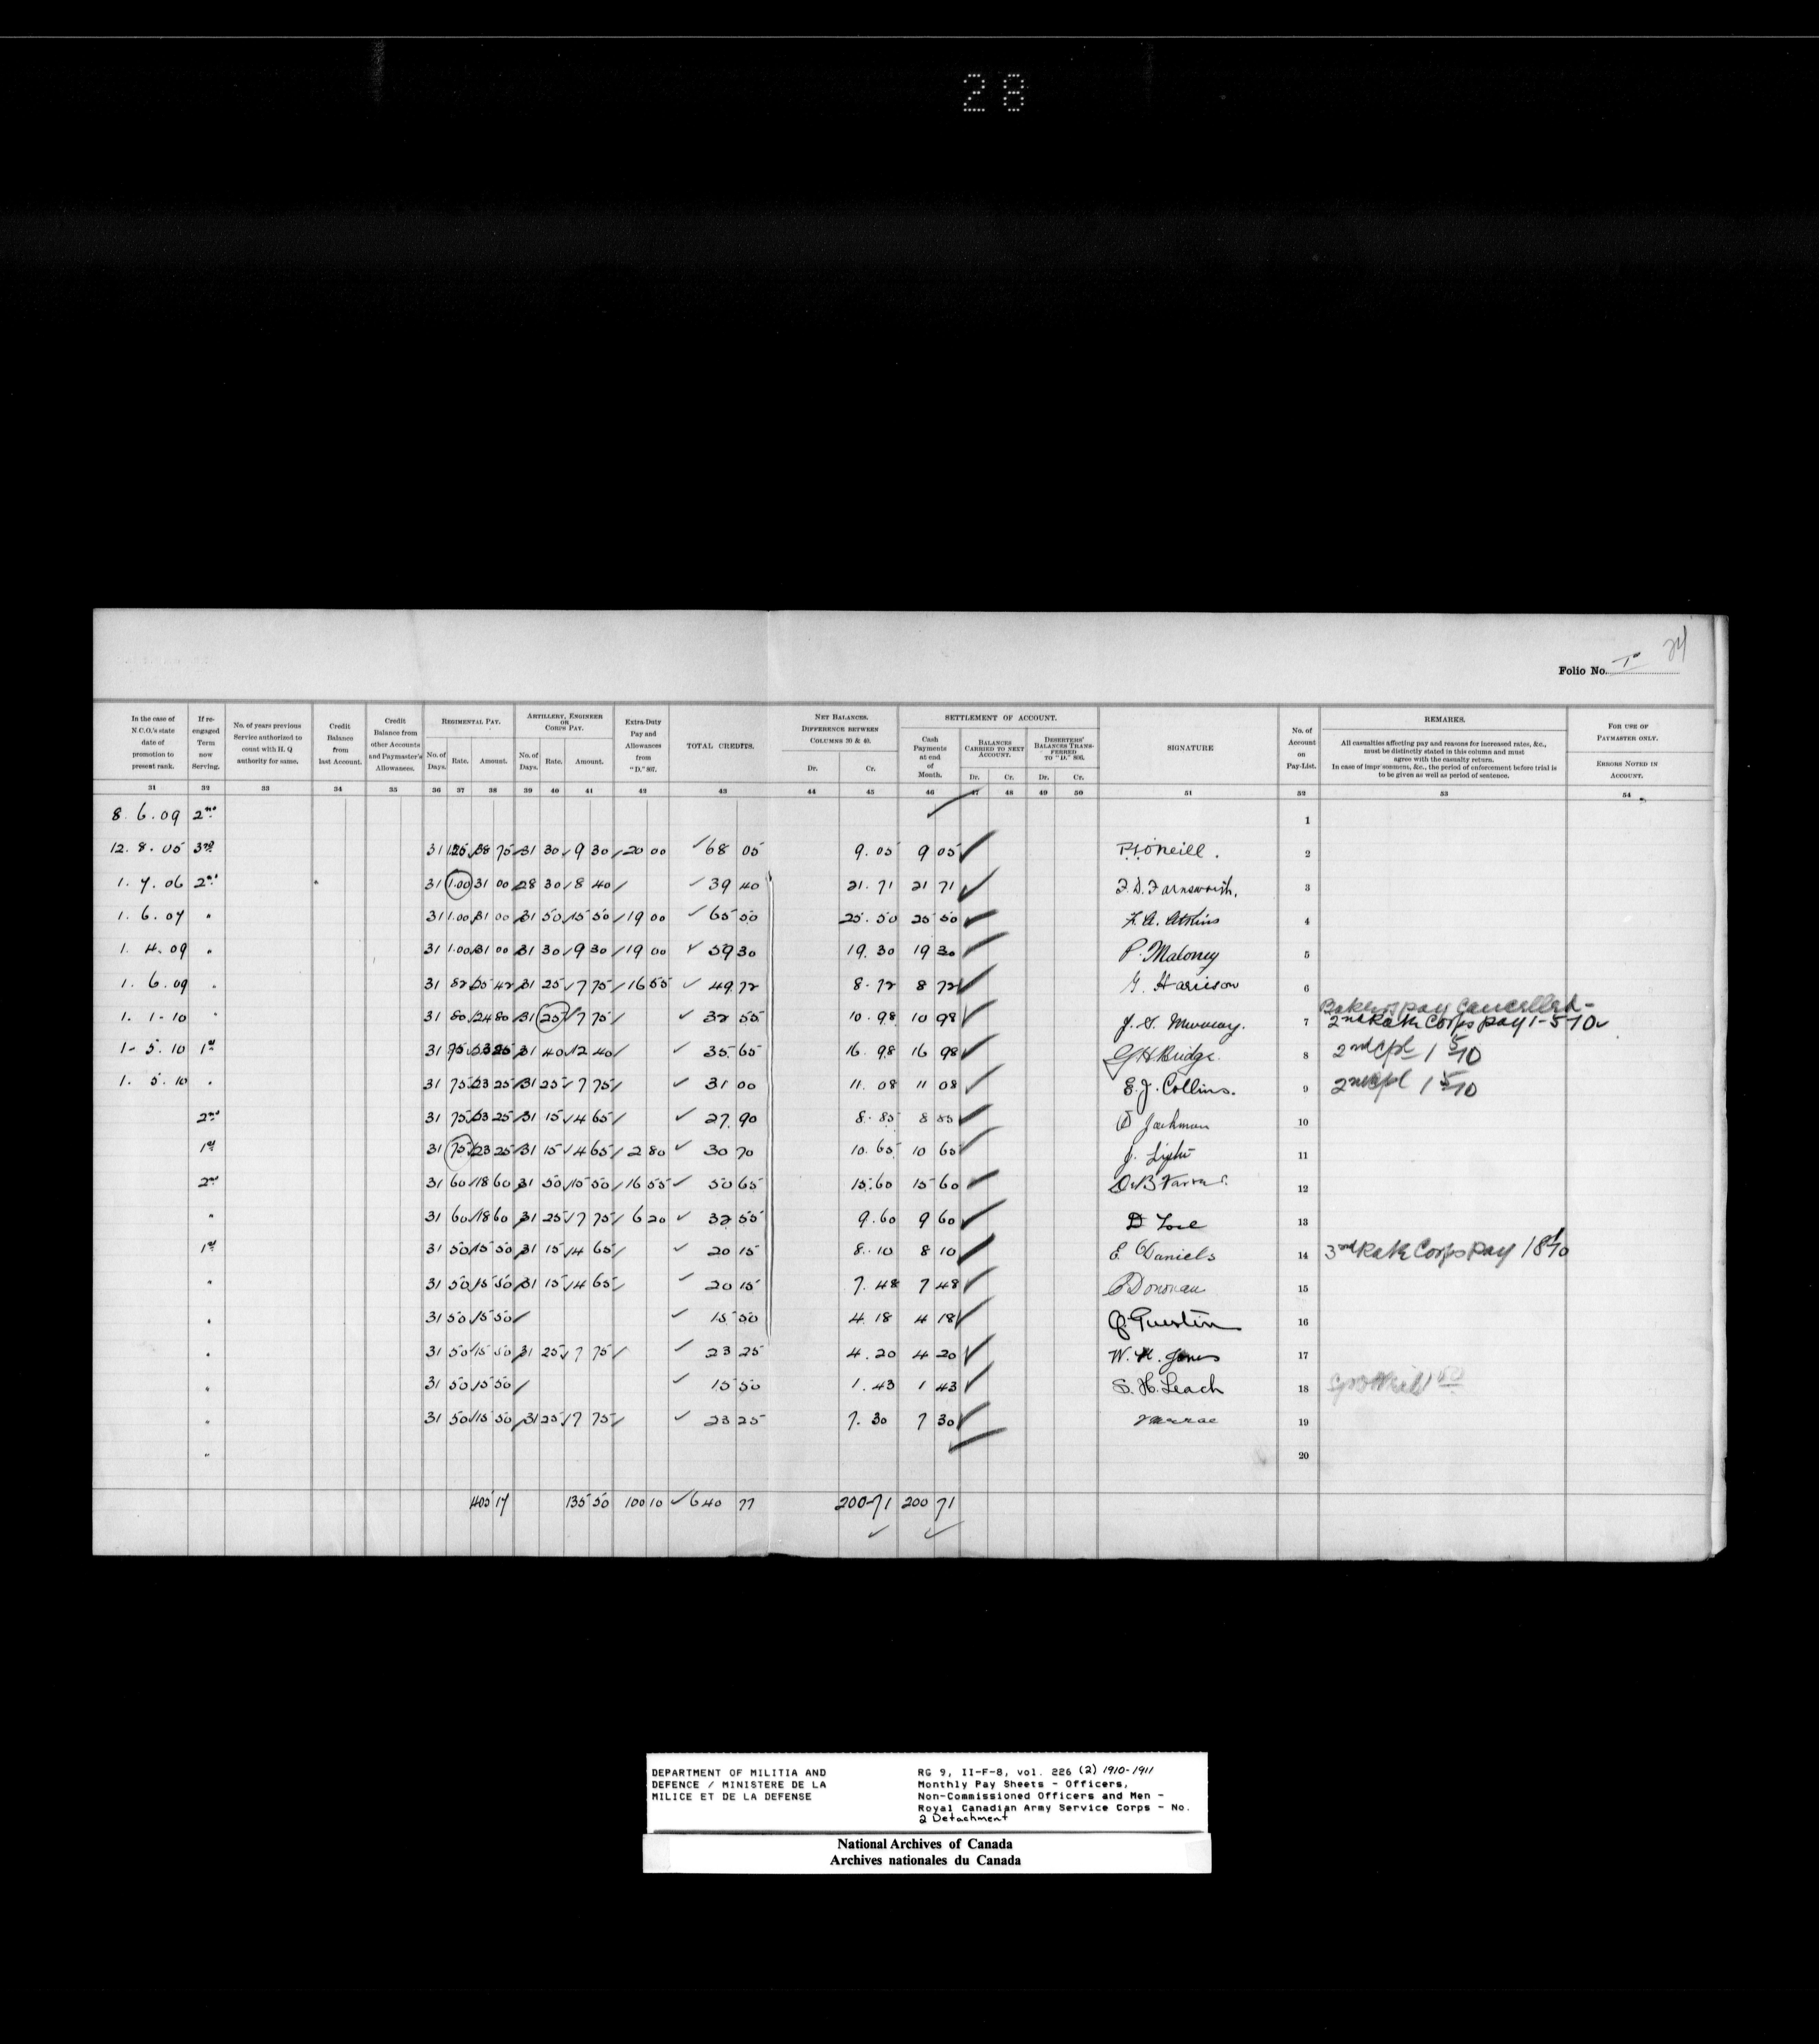 28
24
Folio No. I
In the case of N.C.O.'s state date of promotion to present rank. | If re-engaged Term now Serving. | No. of years previous Service authorized to count with H. Q authority for same. | Credit Balance from last Account. | Credit Balance from other Accounts and Paymaster's Allowances. | REGIMENTAL PAY. | ARTILLERY, ENGINEER OR CORPS PAY. | Extra-Duty Pay and Allowances from "D." 807. | TOTAL CREDITS. | NET BALANCES. DIFFERENCE BETWEEN COLUMNS 30 & 43. | SETTLEMENT OF ACCOUNT. | SIGNATURE | No. of Account on Pay-List. | REMARKS. | FOR USE OF PAYMASTER ONLY.
No. of Days. | Rate. | Amount. | No. of Days. | Rate. | Amount. | Dr. | Cr. | Cash Payments at end of Month. | BALANCES CARRIED TO NEXT ACCOUNT. | DESERTERS' BALANCES TRANSFERRED TO "D." 806. | All casualties affecting pay and reasons for increased rates, &c., must be distinctly stated in this column and must agree with the casualty return. In case of imprisonment, &c., the period of enforcement before trial is to be given as well as period of sentence. | ERRORS NOTED IN ACCOUNT.
Dr. | Cr. | Dr. | Cr.
31 32 33 34 35 36 37 38 39 40 41 42 43 44 45 46 47 48 49 50 51 52 53 54
8. 6. 09 2nd 1
12. 8. 05 3rd 31 1.25 38 75 31 30 9 30 20 00 68 05 9. 05 9 05 P. J. O'Neill. 2
1. 7. 06 2nd 31 1.00 31 00 28 30 8 40 39 40 21. 71 21 71 F. D. Farnsworth. 3
1. 6. 07 " 31 1.00 31 00 31 50 15 50 19 00 65 50 25. 50 25 50 F. A. Atkins 4
1. 4. 09 " 31 1.00 31 00 31 30 9 30 19 00 59 30 19. 30 19 30 P. Maloney 5
1. 6. 09 " 31 82 25 42 31 25 7 75 16 55 49 72 8. 72 8 72 G. Harrison 6
Bakers pay cancelled -
1. 1-10 " 31 80 24 80 31 25 7 75 32 55 10. 98 10 98 7 2nd Rate Corps pay 1-5-10
1- 5. 10 1st 31 75 23 25 31 40 12 40 35 65 16. 98 16 98 G H Bridge. 8 2nd Cpl 1 5/10
1. 5. 10 " 31 75 23 25 31 25 7 75 31 00 11. 08 11 08 E. J. Collins. 9 2nd Cpl 1 5/10
2nd 31 75 23 25 31 15 4 65 27. 90 8. 85 8 85 Jackman 10
1st 31 75 23 25 31 15 4 65 2 80 30 70 10. 65 10 65 11
2nd 31 60 18 60 31 50 15 50 16 55 50 65 15. 60 15 60 12
" 31 60 18 60 31 25 7 75 6 20 32 55 9. 60 9 60 13
1st 31 50 15 50 31 15 4 65 20 15 8. 10 8 10 E Daniels 14 3rd Rate Corps Pay
" 31 50 15 50 31 15 4 65 20 15 7. 48 7 48 Donovan 15
" 31 50 15 50 15 50 4. 18 4 18 16
" 31 50 15 50 31 25 7 75 23 25 4. 20 4 20 W. H. Jones 17
" 31 50 15 50 15 50 1. 43 1 43 S. H. Leach 18
" 31 50 15 50 31 25 7 75 23 25 7. 30 7 30 19
" 20
405 17 135 50 100 10 640 77 200 71 200 71
DEPARTMENT OF MILITIA AND
DEFENCE / MINISTERE DE LA
MILICE ET DE LA DEFENSE
RG 9, II-F-8, vol. 226 (2) 1910-1911
Monthly Pay Sheets - Officers,
Non-Commissioned Officers and Men -
Royal Canadian Army Service Corps - No.
2 Detachment
National Archives of Canada
Archives nationales du Canada